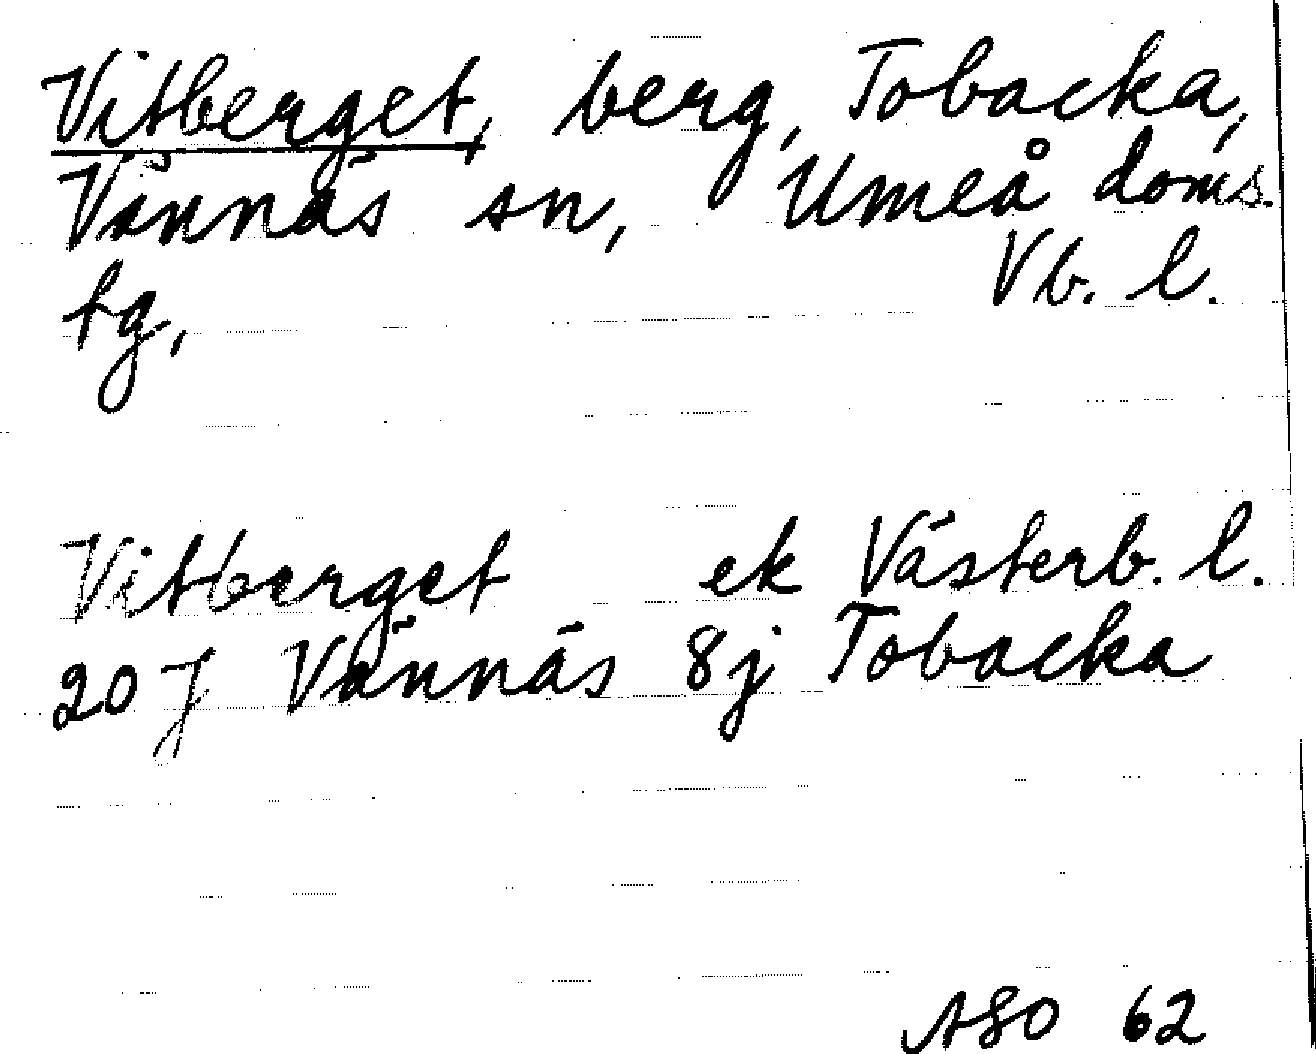 Vitberget, berg, Tobacka,
Vännäs sn, Umeå doms.
tg, Vb. l.
Vitberget ek Västerb. l.
20 J Vännäs 8j Tobacka
ASO 62